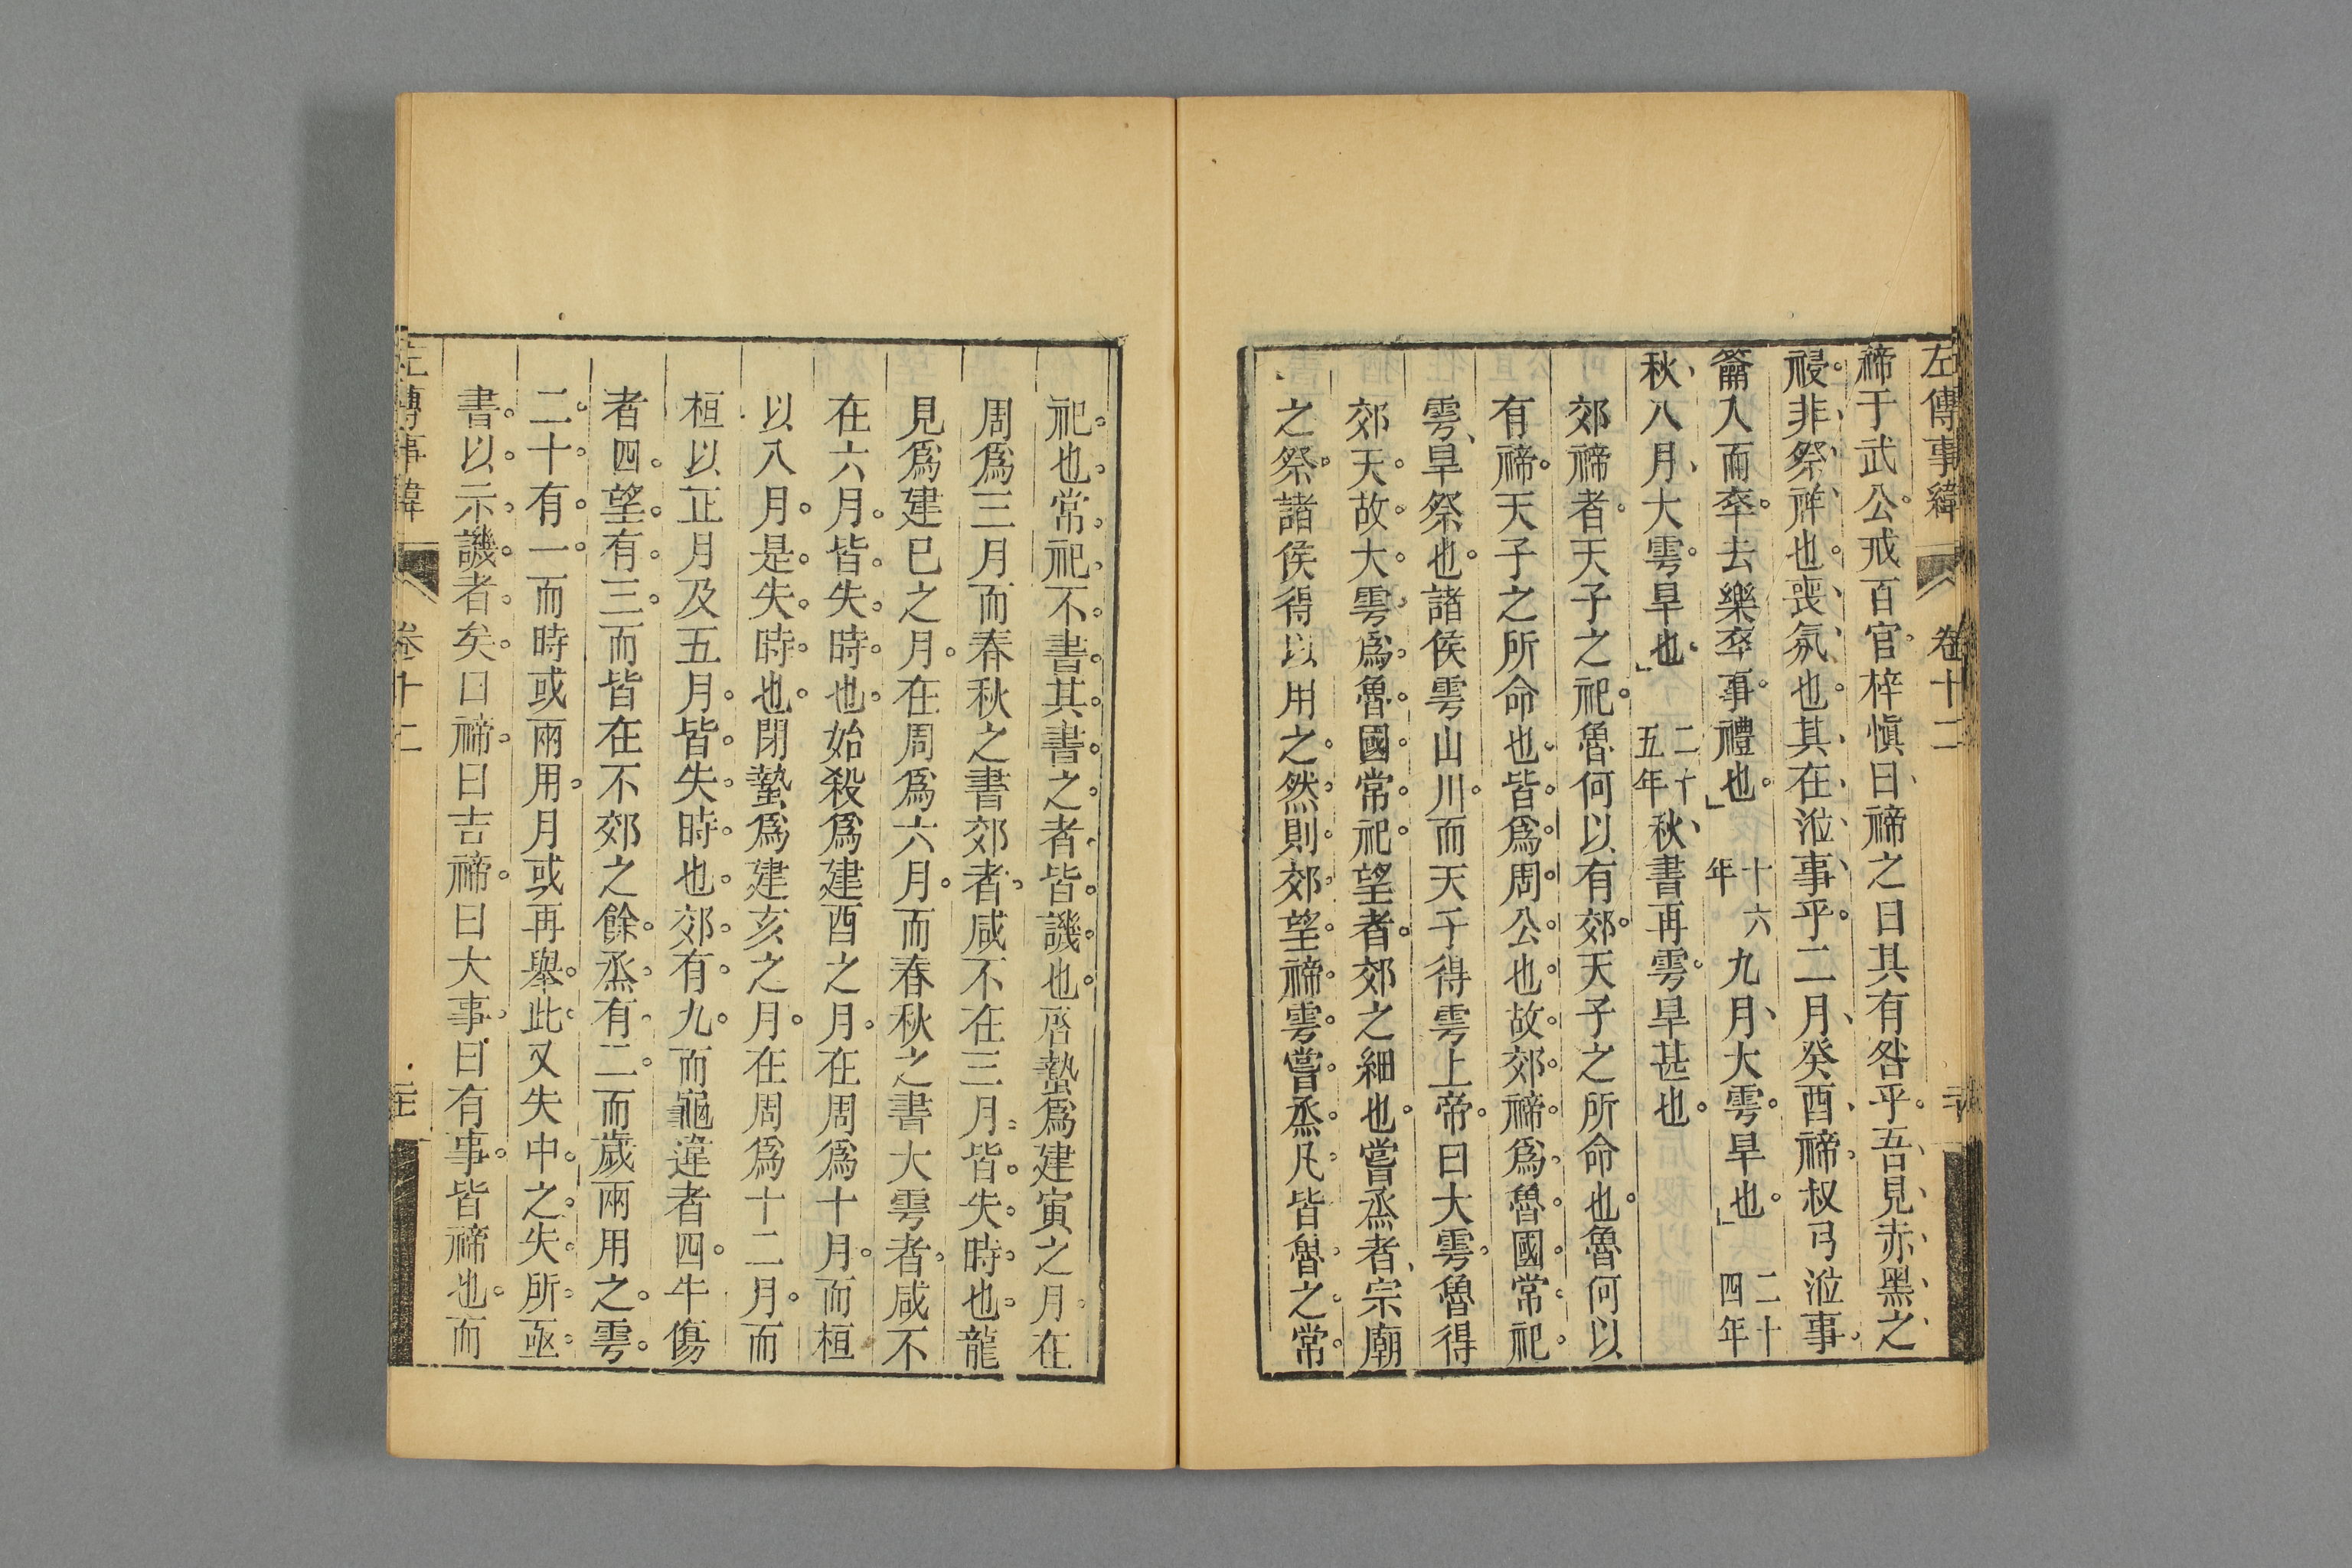 左傳事緯 卷十二
禘于武公戒百官梓愼曰禘之日其有咎乎吾見赤黑之
祲非祭祥也喪氛也其在涖事乎二月癸酉禘叔弓涖事
籥入而卒去樂卒事禮也 十六年 九月大雩旱也 二十四年
秋八月大雩旱也 二十五年 秋書再雩旱甚也
郊禘者天子之祀魯何以有郊天子之所命也魯何以
有禘天子之所命也皆爲周公也故郊禘爲魯國常祀
雩旱祭也諸侯雩山川而天子得雩上帝曰大雩魯得
郊天故大雩爲魯國常祀望者郊之細也嘗烝者宗廟
之祭諸侯得以用之然則郊望禘雩嘗烝凡皆魯之常
祀也常祀不書其書之者皆譏也啓蟄爲建寅之月在
周爲三月而春秋之書郊者咸不在三月皆失時也龍
見爲建巳之月在周爲六月而春秋之書大雩者咸不
在六月皆失時也始殺爲建酉之月在周爲十月而桓
以八月是失時也閉蟄爲建亥之月在周爲十二月而
桓以正月及五月皆失時也郊有九而龜違者四牛傷
者四望有三而皆在不郊之餘烝有二而歲兩用之雩
二十有一而時或兩用月或再舉此又失中之失所亟
書以示譏者矣曰禘曰吉禘曰大事曰有事皆禘也而
左傳事緯 卷十二